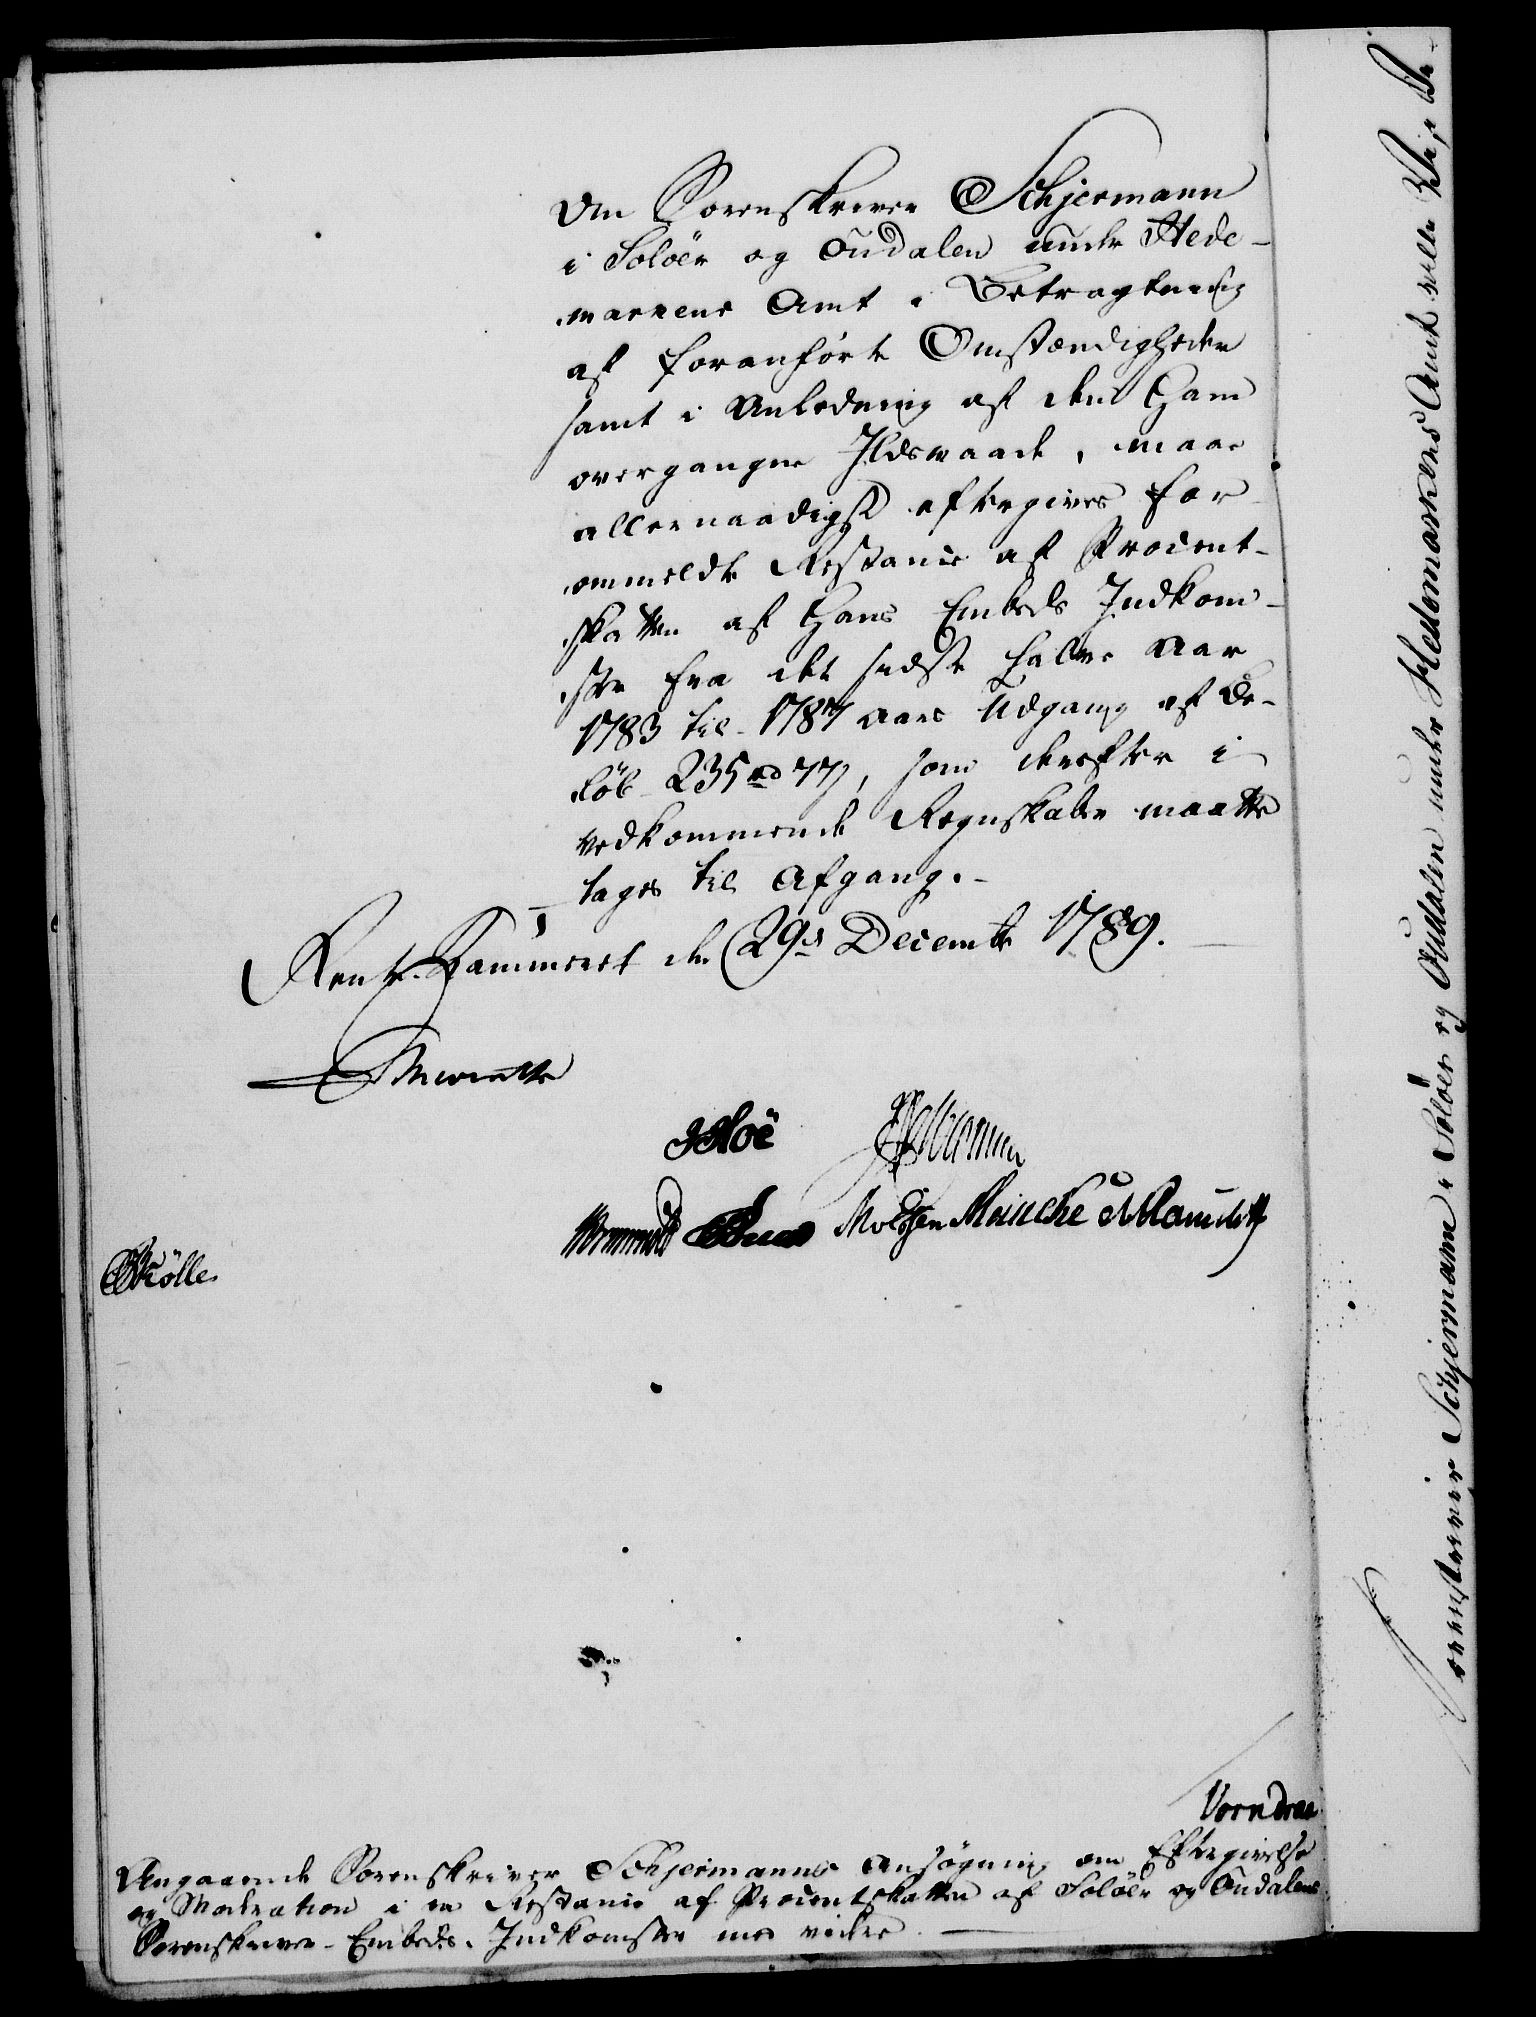 Om Sorenskriver Schjermann
i Soloër og Oudalen under Hede-
markens Amt i Betragtning
af foranförte Omstændigheder
samt i Anledning af den ham
overgangne Ildsvaade, maae
allernaadigst eftergives for-
ommeldte Restance af Procent-
skatten af hans Embeds Indkom-
ster fra det sidste halve Aar
1783 til 1787 Aars Udgang af Be-
löb 235 rd 77 s, som derefter i
vedkommende Regnskaber maatte
tages til Afgang.-
Rente-Kammeret den 29de Decembr 1789.
Hoë
Moltzen Meincke
Krölle
Vorndran
Angaaende Sorenskriver Schjermanns Ansögning om Eftergivelse
og Moderation i en Restance af Procentskatten af Soloër og Oudalens
Sorenskriver-Embeds Indkomster med videre.
Sorenskriver Schjermann i Soloër og Oudalen under Hedemarkens Amt